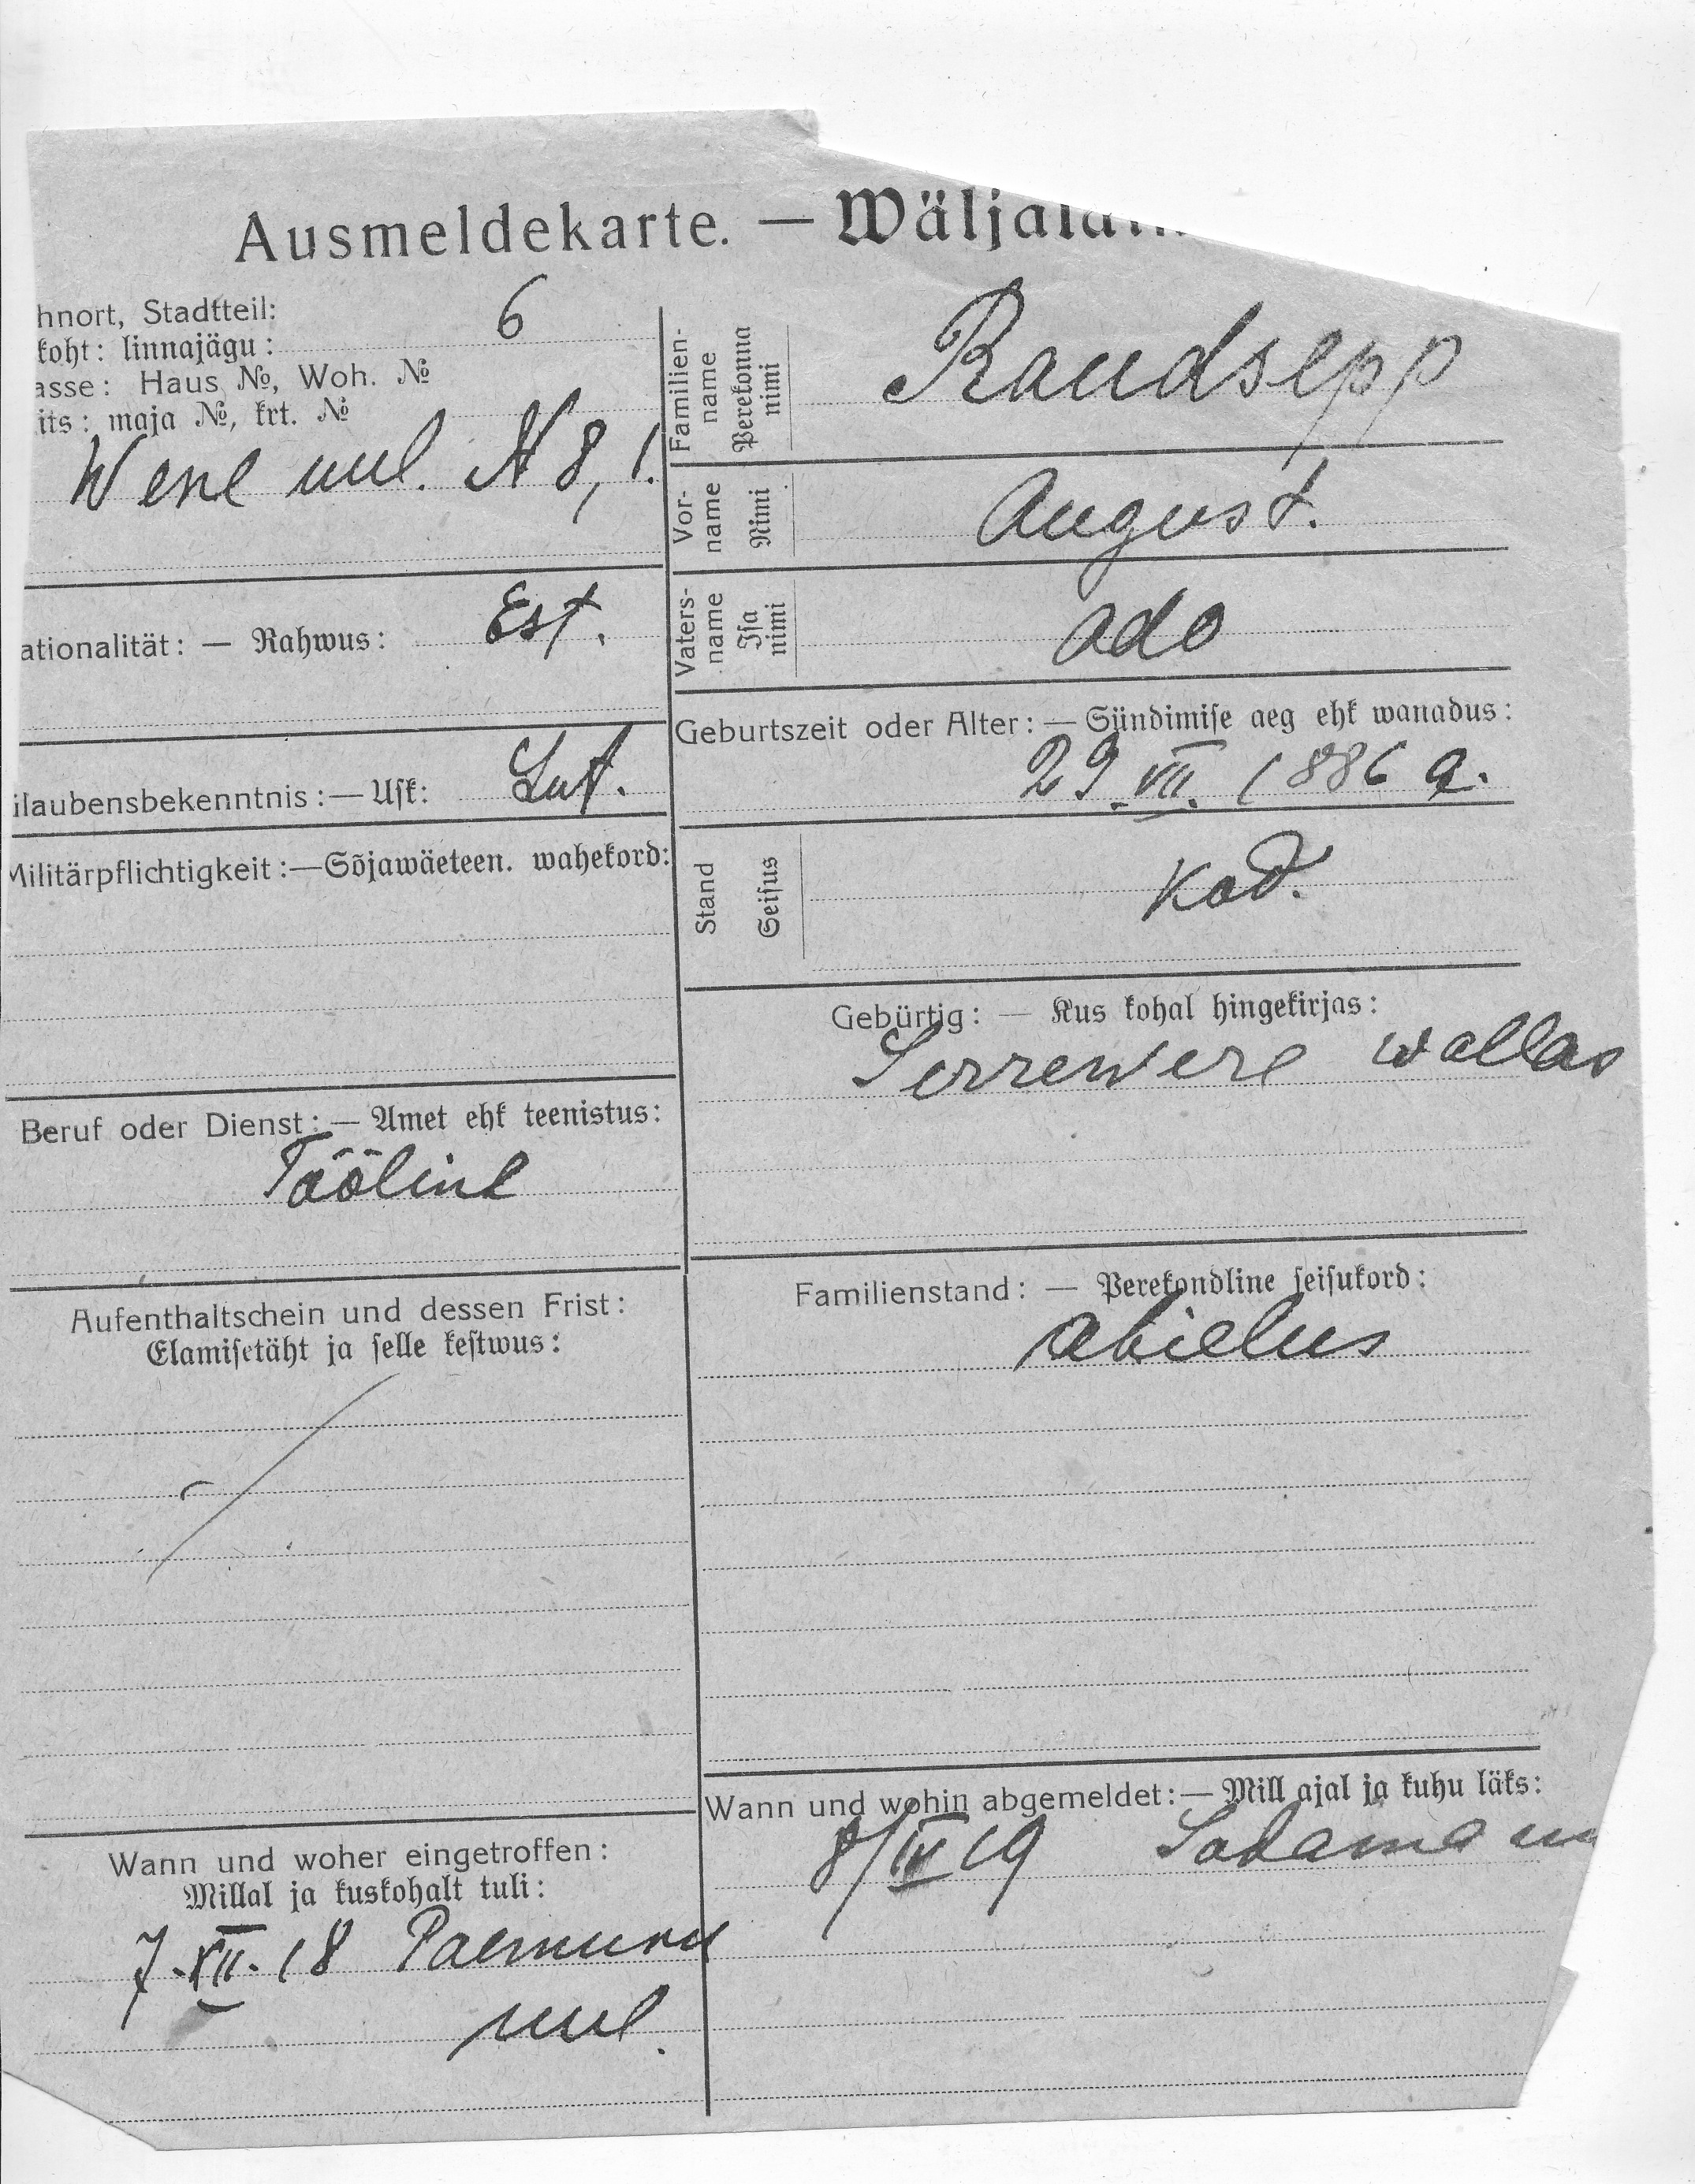 Ausmeldekarte. — Wäljala
hnort, Stadtteil:
koht: linnajägu: 6
asse: Haus №, Woh. №
its: maja №, krt. №
Wene uul. N 8, 1.
ationalität: — Rahwus: Est.
laubensbekenntnis: — Usk: Lut.
Militärpflichtigkeit: — Sõjawäeteen. wahekord:
Beruf oder Dienst: — Amet ehk teenistus:
Tööline
Aufenthaltschein und dessen Frist:
Elamisetäht ja selle kestwus:
Wann und woher eingetroffen:
Millal ja kuskohalt tuli:
7. XII. 18 Paemuru
uul.
Familien-name Perekonna nimi Raudsepp
Vor-name Nimi August.
Vaters-name Isa nimi Ado
Geburtszeit oder Alter: — Sündimise aeg ehk wanadus:
29. VII. 1886 a.
Stand Seisus Kod.
Gebürtig: — Kus kohal hingekirjas:
wallas
Familienstand: — Perekondline seisukord:
abielus
Wann und wohin abgemeldet: — Mill ajal ja kuhu läks:
8/III 19 Sadama uu